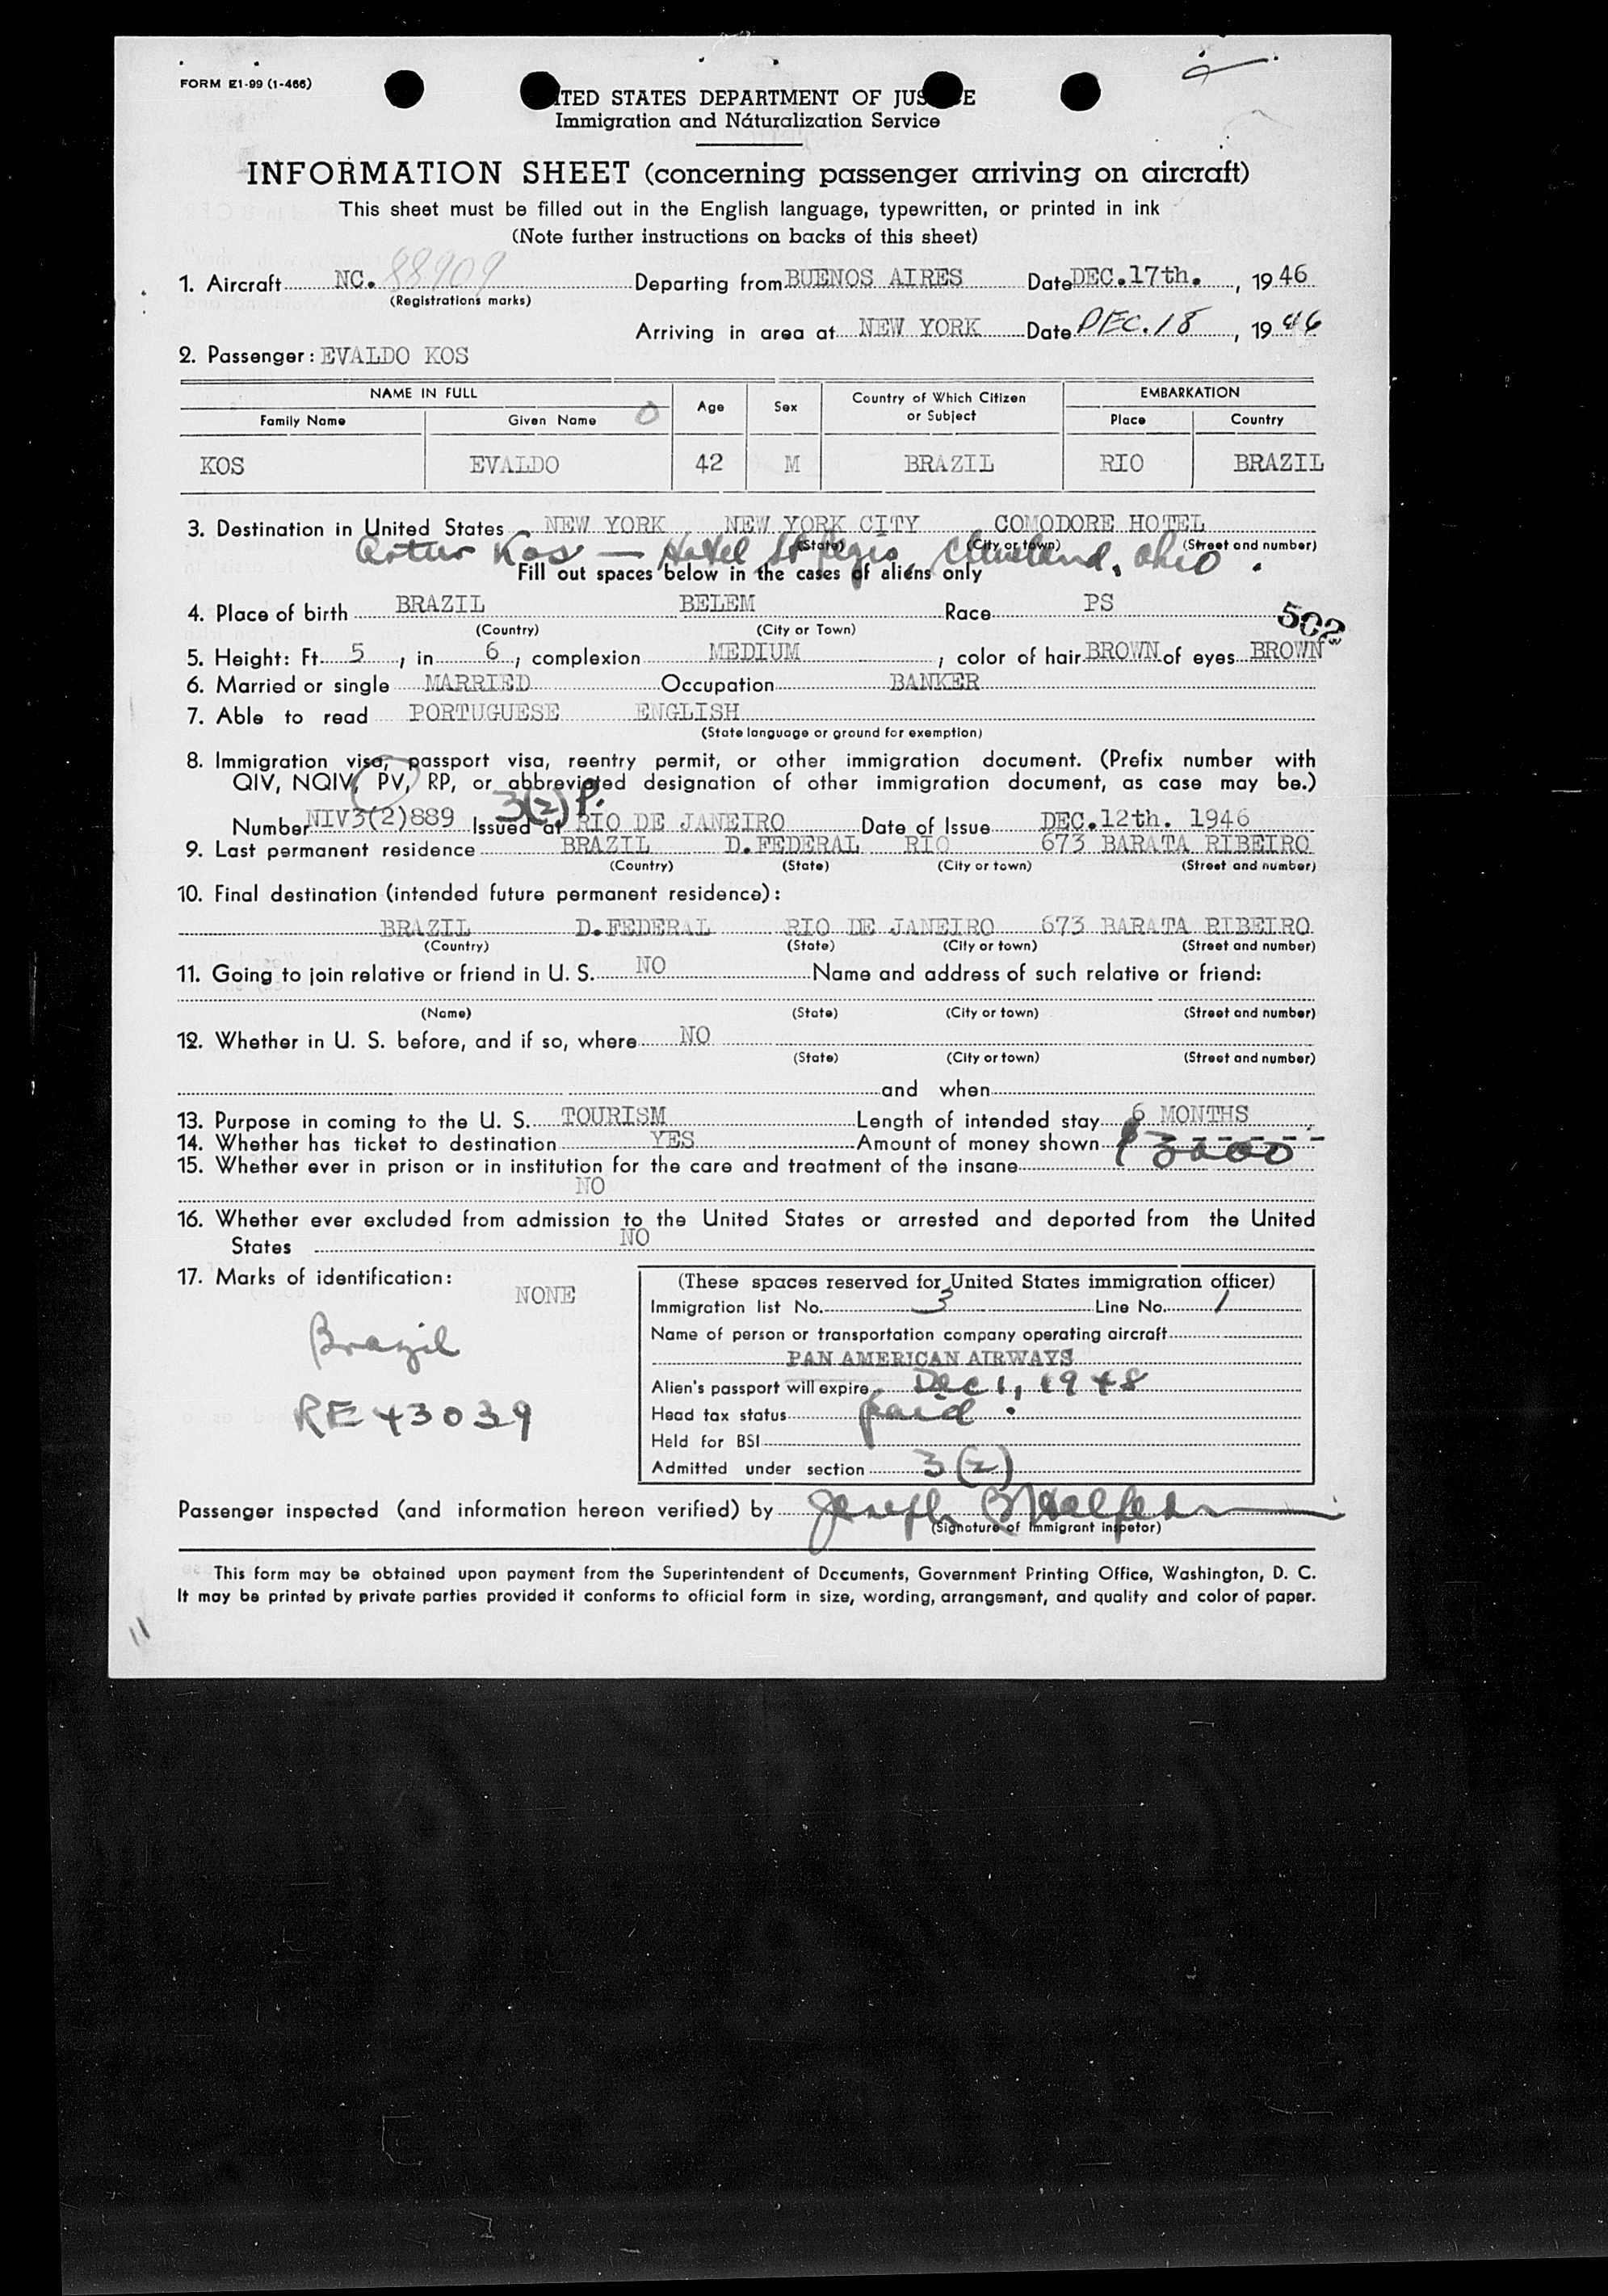 FORM E1-99 (1-466)
ITED STATES DEPARTMENT OF JUS E
Immigration and Naturalization Service
INFORMATION SHEET (concerning passenger arriving on aircraft)
This sheet must be filled out in the English language, typewritten, or printed in ink
(Note further instructions on backs of this sheet)
1. Aircraft NC. 88909 Departing from BUENOS AIRES Date DEC.17th. , 19 46
(Registrations marks)
Arriving in area at NEW YORK Date DEC.18 , 19 46
2. Passenger: EVALDO KOS
NAME IN FULL Age Sex Country of Which Citizen or Subject EMBARKATION
Family Name Given Name Place Country
KOS EVALDO 42 M BRAZIL RIO BRAZIL
3. Destination in United States NEW YORK NEW YORK CITY COMODORE HOTEL
(State) (City or town) (Street and number)
Artur Kos — Hotel St Regis, Cleveland, Ohio.
Fill out spaces below in the cases of aliens only
4. Place of birth BRAZIL BELEM Race PS
(Country) (City or Town)
502
5. Height: Ft. 5 , in 6 , complexion MEDIUM , color of hair BROWN of eyes BROWN
6. Married or single MARRIED Occupation BANKER
7. Able to read PORTUGUESE ENGLISH
(State language or ground for exemption)
8. Immigration visa, passport visa, reentry permit, or other immigration document. (Prefix number with
QIV, NQIV, PV, RP, or abbreviated designation of other immigration document, as case may be.)
3(2) P.
Number NIV3(2)889 Issued at RIO DE JANEIRO Date of Issue DEC.12th. 1946
9. Last permanent residence BRAZIL D.FEDERAL RIO 673 BARATA RIBEIRO
(Country) (State) (City or town) (Street and number)
10. Final destination (intended future permanent residence):
BRAZIL D.FEDERAL RIO DE JANEIRO 673 BARATA RIBEIRO
(Country) (State) (City or town) (Street and number)
11. Going to join relative or friend in U. S. NO Name and address of such relative or friend:
(Name) (State) (City or town) (Street and number)
12. Whether in U. S. before, and if so, where NO
(State) (City or town) (Street and number)
and when
13. Purpose in coming to the U. S. TOURISM Length of intended stay 6 MONTHS
14. Whether has ticket to destination YES Amount of money shown $ 3000
15. Whether ever in prison or in institution for the care and treatment of the insane
NO
16. Whether ever excluded from admission to the United States or arrested and deported from the United
States NO
17. Marks of identification:
NONE
Brazil
RE 43039
(These spaces reserved for United States immigration officer)
Immigration list No. 3 Line No. 1
Name of person or transportation company operating aircraft
PAN AMERICAN AIRWAYS
Alien's passport will expire Dec 1, 1948
Head tax status paid.
Held for BSI
Admitted under section 3(2)
Passenger inspected (and information hereon verified) by Joseph
(Signature of Immigrant inspetor)
This form may be obtained upon payment from the Superintendent of Documents, Government Printing Office, Washington, D. C.
It may be printed by private parties provided it conforms to official form in size, wording, arrangement, and quality and color of paper.
11